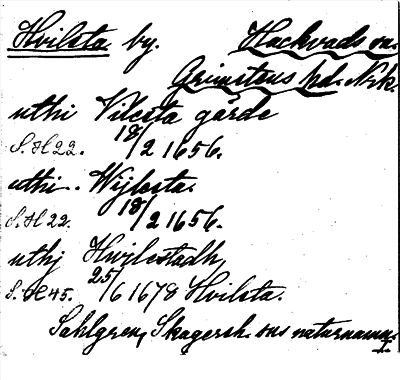 Hvilsta. by. Hackvads sn.
Grimstens hd. Nrk.
uthi Vilesta gärde
S. H 22. 18/2 1656.
uthi. Wijlesta.
S. H 22. 18/2 1656.
uthj Hwilestadh,
S. H 45. 25/6 1678 Hvilsta.
Sahlgren, Skagersh. sns naturnamn.
I.